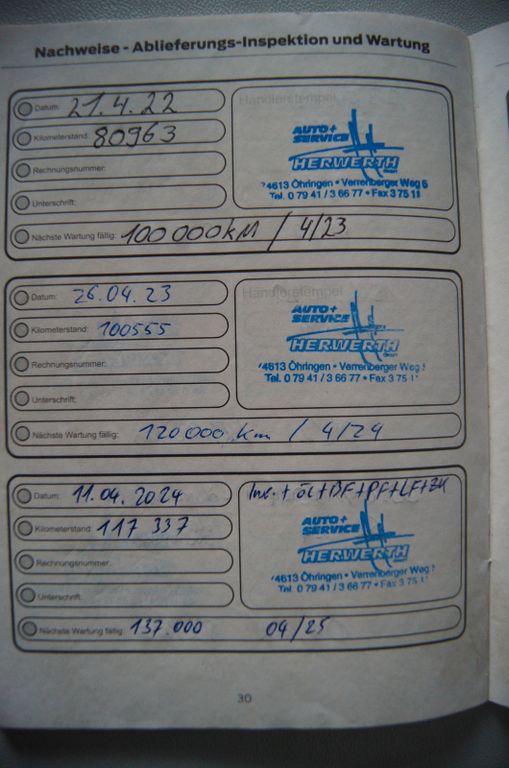 Nachweise - Ablieferungs-Inspektion und Wartung
Datum: 21.4.22
Kilometerstand: 80963
Rechnungsnummer:
Unterschrift:
Händlerstempel
AUTO +
SERVICE
HERWERTH
74613 Öhringen • Verrenberger Weg 6
Tel. 0 79 41 / 3 66 77 • Fax 3 75 11
Nächste Wartung fällig: 100 000 KM / 4/23
Datum: 26.04.23
Kilometerstand: 100555
Rechnungsnummer:
Unterschrift:
Händlerstempel
AUTO +
SERVICE
HERWERTH
74613 Öhringen • Verrenberger Weg
Tel. 0 79 41 / 3 66 77 • Fax 3 75 1
Nächste Wartung fällig: 120 000 km / 4/24
Datum: 11.04.2024
Kilometerstand: 117 337
Rechnungsnummer:
Unterschrift:
Ins. + Öl + BF + PF + LF +
AUTO +
SERVICE
HERWERTH
74613 Öhringen • Verrenberger Weg
Tel. 0 79 41 / 3 66 77 • Fax 3 75 1
Nächste Wartung fällig: 137.000 04/25
30